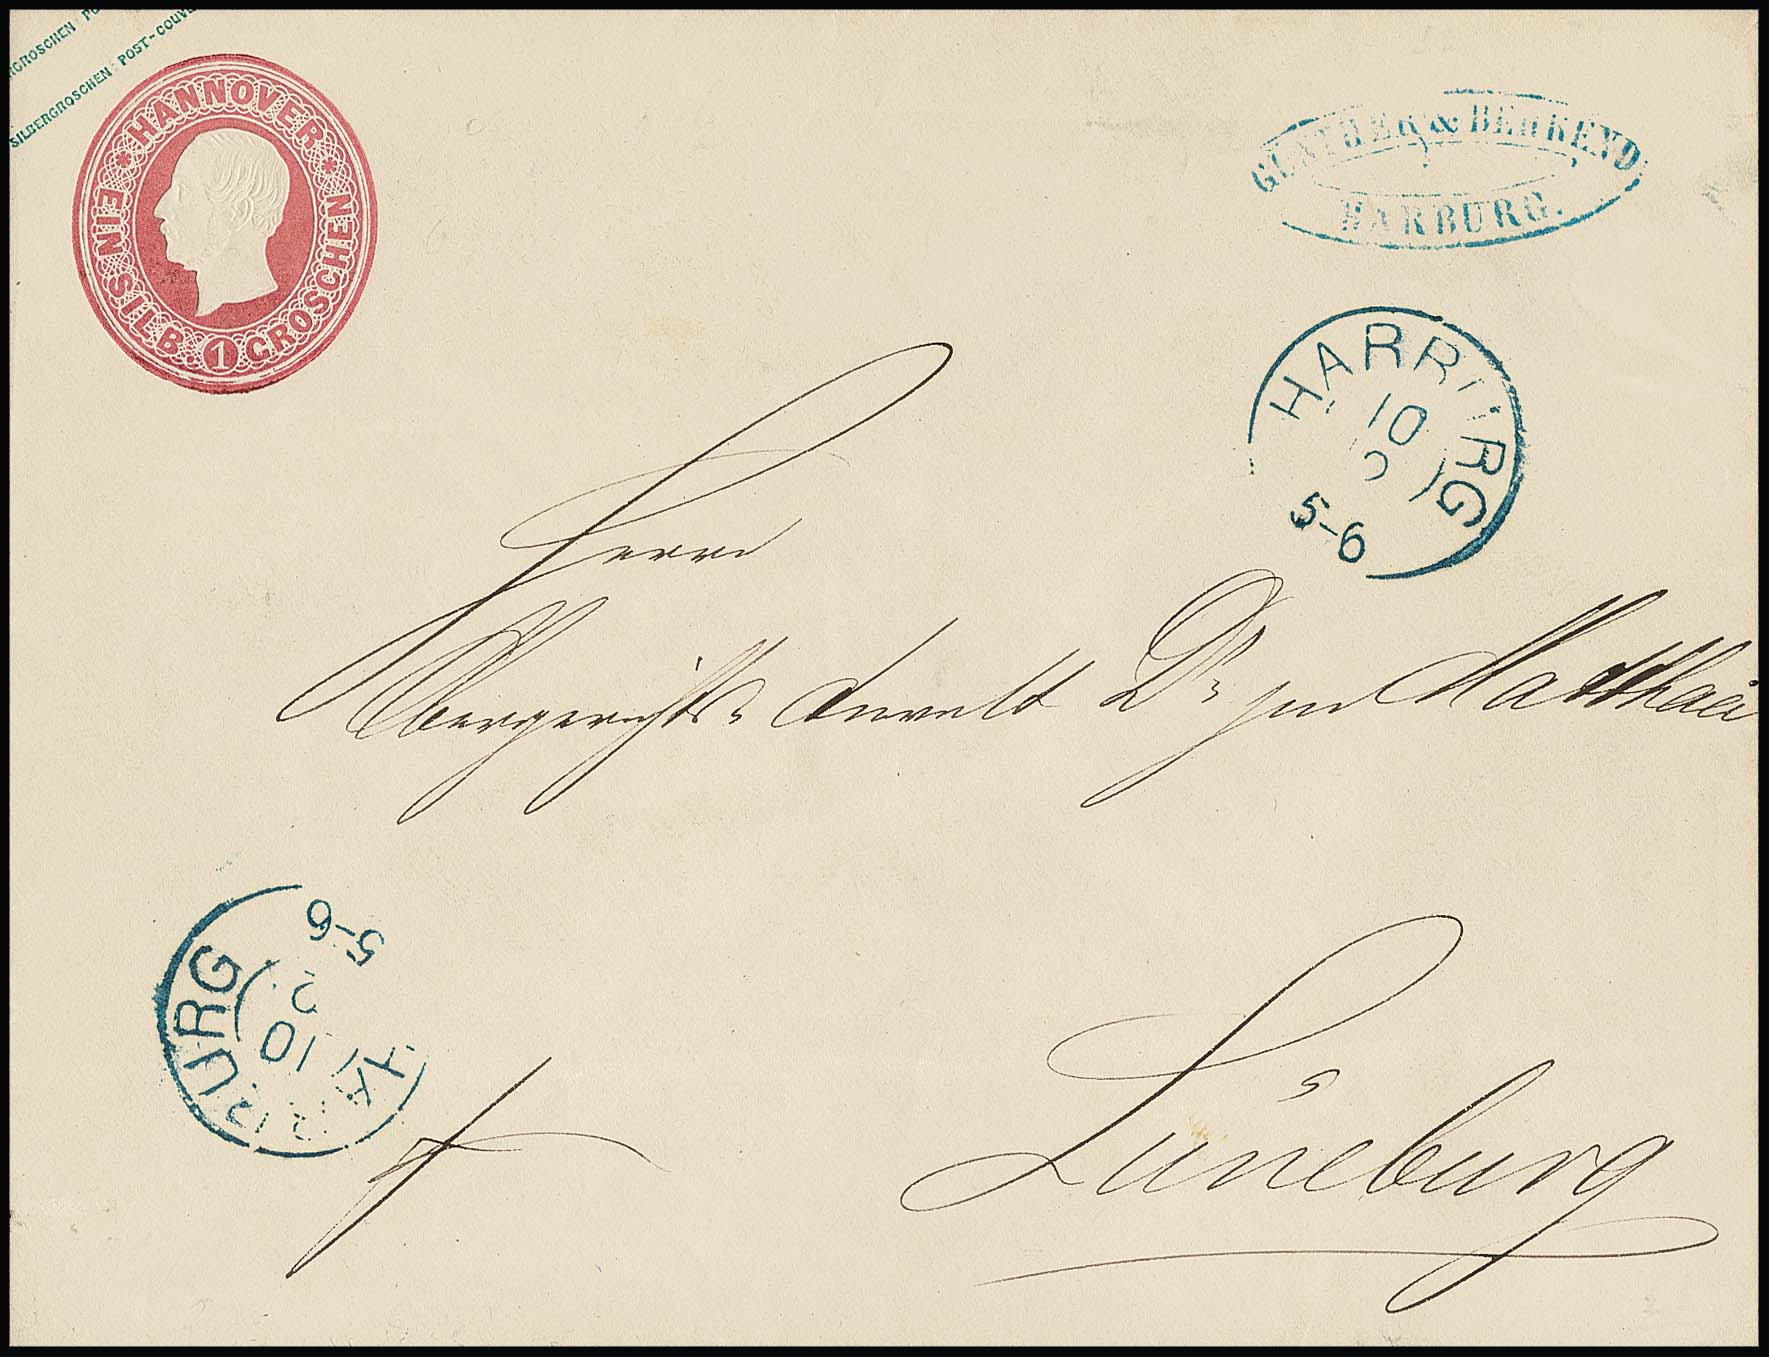 GROSCHEN PO
SILBERGROSCHEN POST-COUVE
* HANNOVER *
EIN SILB. 1 GROSCHEN
& BERREND
HARBURG.
HARBURG
10
5-6
Herrn
Obergerichts-Anwalt Dr jur Matthaei
HARBURG
10
2
5-6
Lüneburg